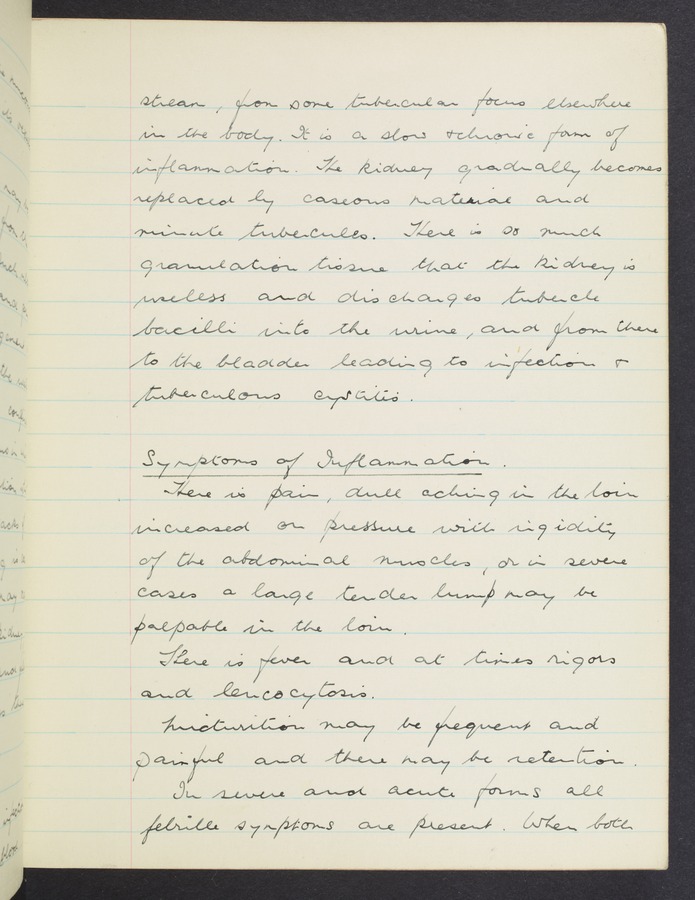 stream, from some tubercular focus elsewhere
in the body. It is a slow & chronic form of
inflammation. The kidney gradually becomes
replaced by caseous material and
minute tubercules. There is so much
granulation tissue that the kidney is
useless and discharges tubercle
bacilli into the urine, and from there
to the bladder leading to infection &
tuberculous cystitis.
Symptoms of Inflammation.
There is pain, dull aching in the loin
increased on pressure with rigidity
of the abdominal muscles, or in severe
cases a large tender lump may be
palpable in the loin.
There is fever and at times rigors
and leucocytosis.
Micturition may be frequent and
painful and there may be retention.
In severe and acute forms all
febrile symptoms are present. When both